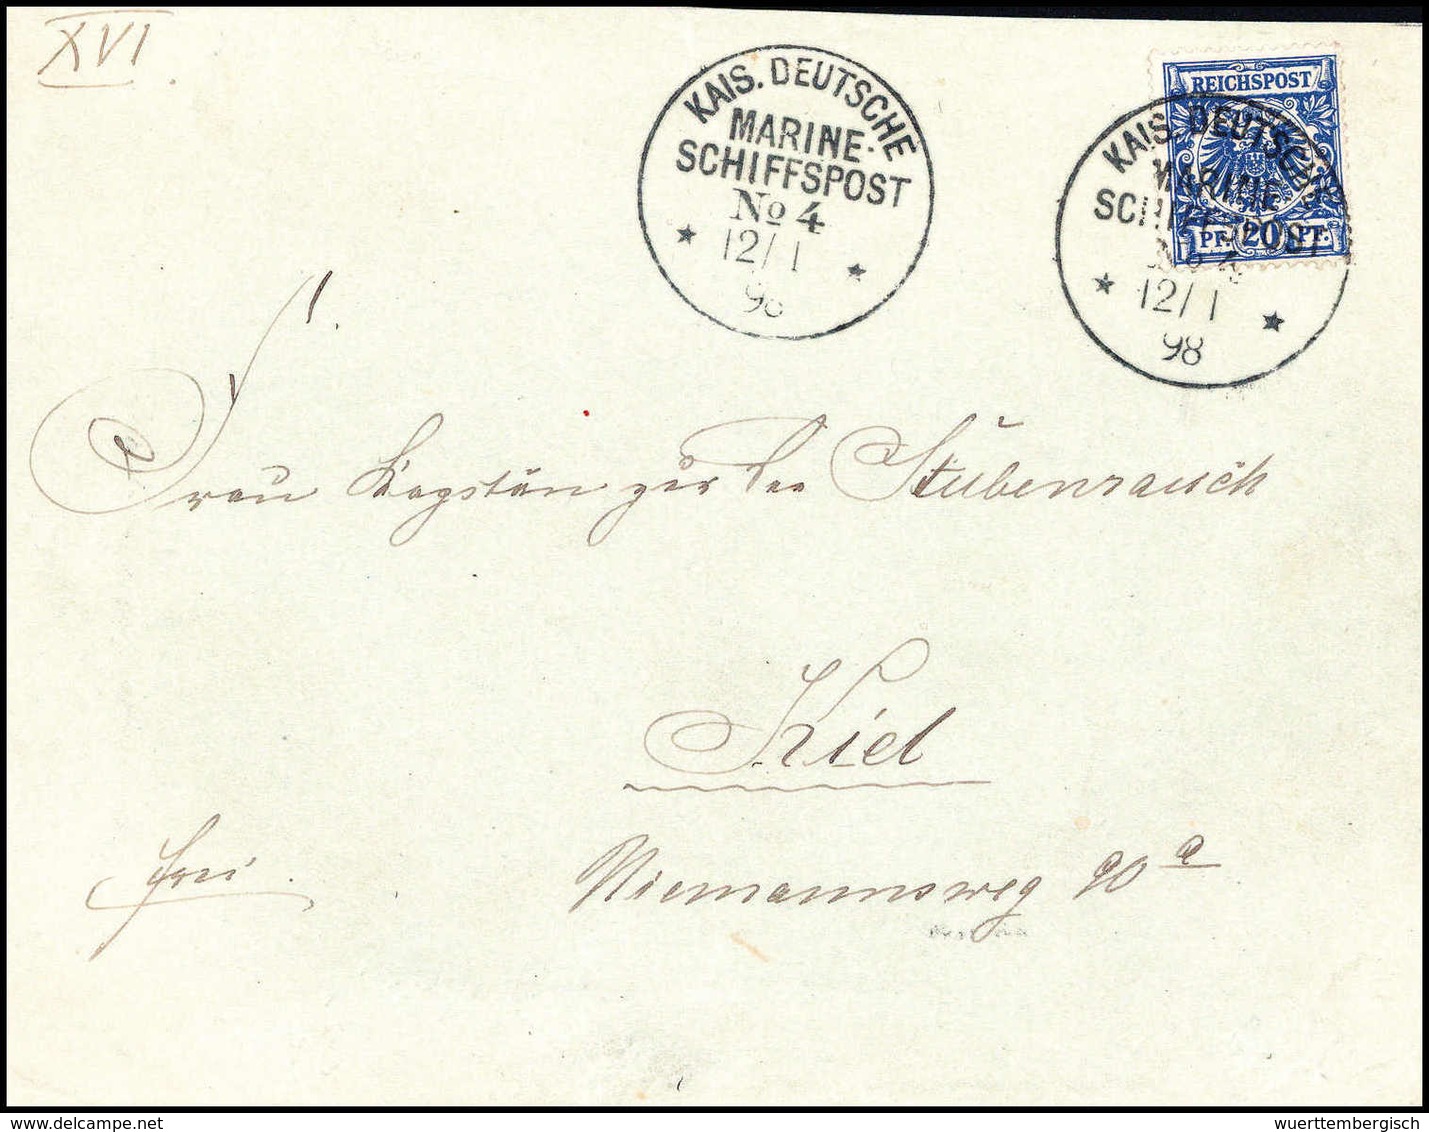 XVI.
KAIS. DEUTSCHE
MARINE-
SCHIFFSPOST
No 4
12/1
98
REICHSPOST
PF. 20 PF.
KAIS. DEUTSCHE
MARINE-
SCHIFFSPOST
No 4
12/1
98
Frau Kapitän zur See Stubenrauch
Kiel
frei.
Niemannsweg 90 a
wuerttembergisch